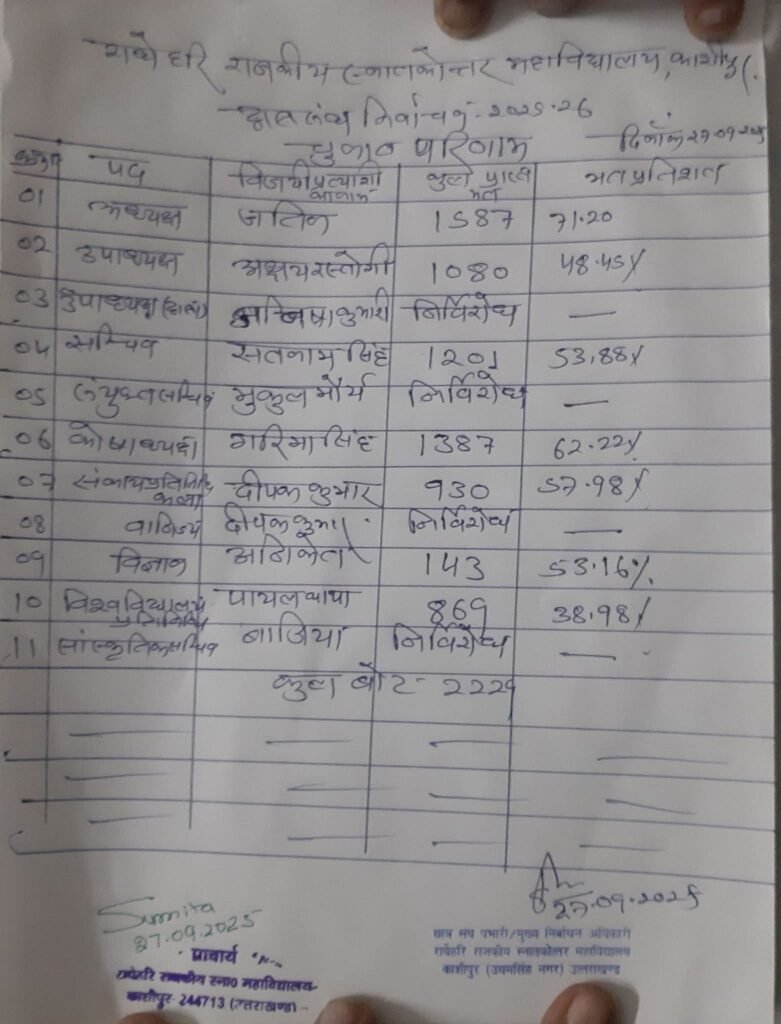 राधे हरि राजकीय स्नातकोत्तर महाविद्यालय, काशीपुर
छात्र संघ निर्वाचन :- 2025-26
चुनाव परिणाम दिनाँक 27-09-2025
पद विजयी प्रत्याशी का नाम कुल प्राप्त मत मत प्रतिशत
01 अध्यक्ष जतिन 1587 71.20
02 उपाध्यक्ष अक्षय रस्तोगी 1080 48.45%
03 उपाध्यक्ष (छात्रा) कुमारी निर्विरोध —
04 सचिव सतनाम सिंह 1201 53.88%
05 संयुक्त सचिव मुकुल मौर्य निर्विरोध —
06 कोषाध्यक्ष गरिमा सिंह 1387 62.22%
07 संकाय प्रतिनिधि कला दीपक कुमार 930 57.98%
08 वाणिज्य दीपक कुमार निर्विरोध —
09 विज्ञान अनिकेत 143 53.16%
10 विश्वविद्यालय प्रतिनिधि पायल 869 38.98%
11 सांस्कृतिक सचिव निर्विरोध —
कुल वोट - 2229
Sumita
27.09.2025
27.09.2025
प्राचार्य
राधेहरि राजकीय स्ना० महाविद्यालय
काशीपुर 244713 (उत्तराखण्ड)
छात्र संघ प्रभारी/मुख्य निर्वाचन अधिकारी
राधेहरि राजकीय स्नातकोत्तर महाविद्यालय
काशीपुर (उधमसिंह नगर) उत्तराखण्ड